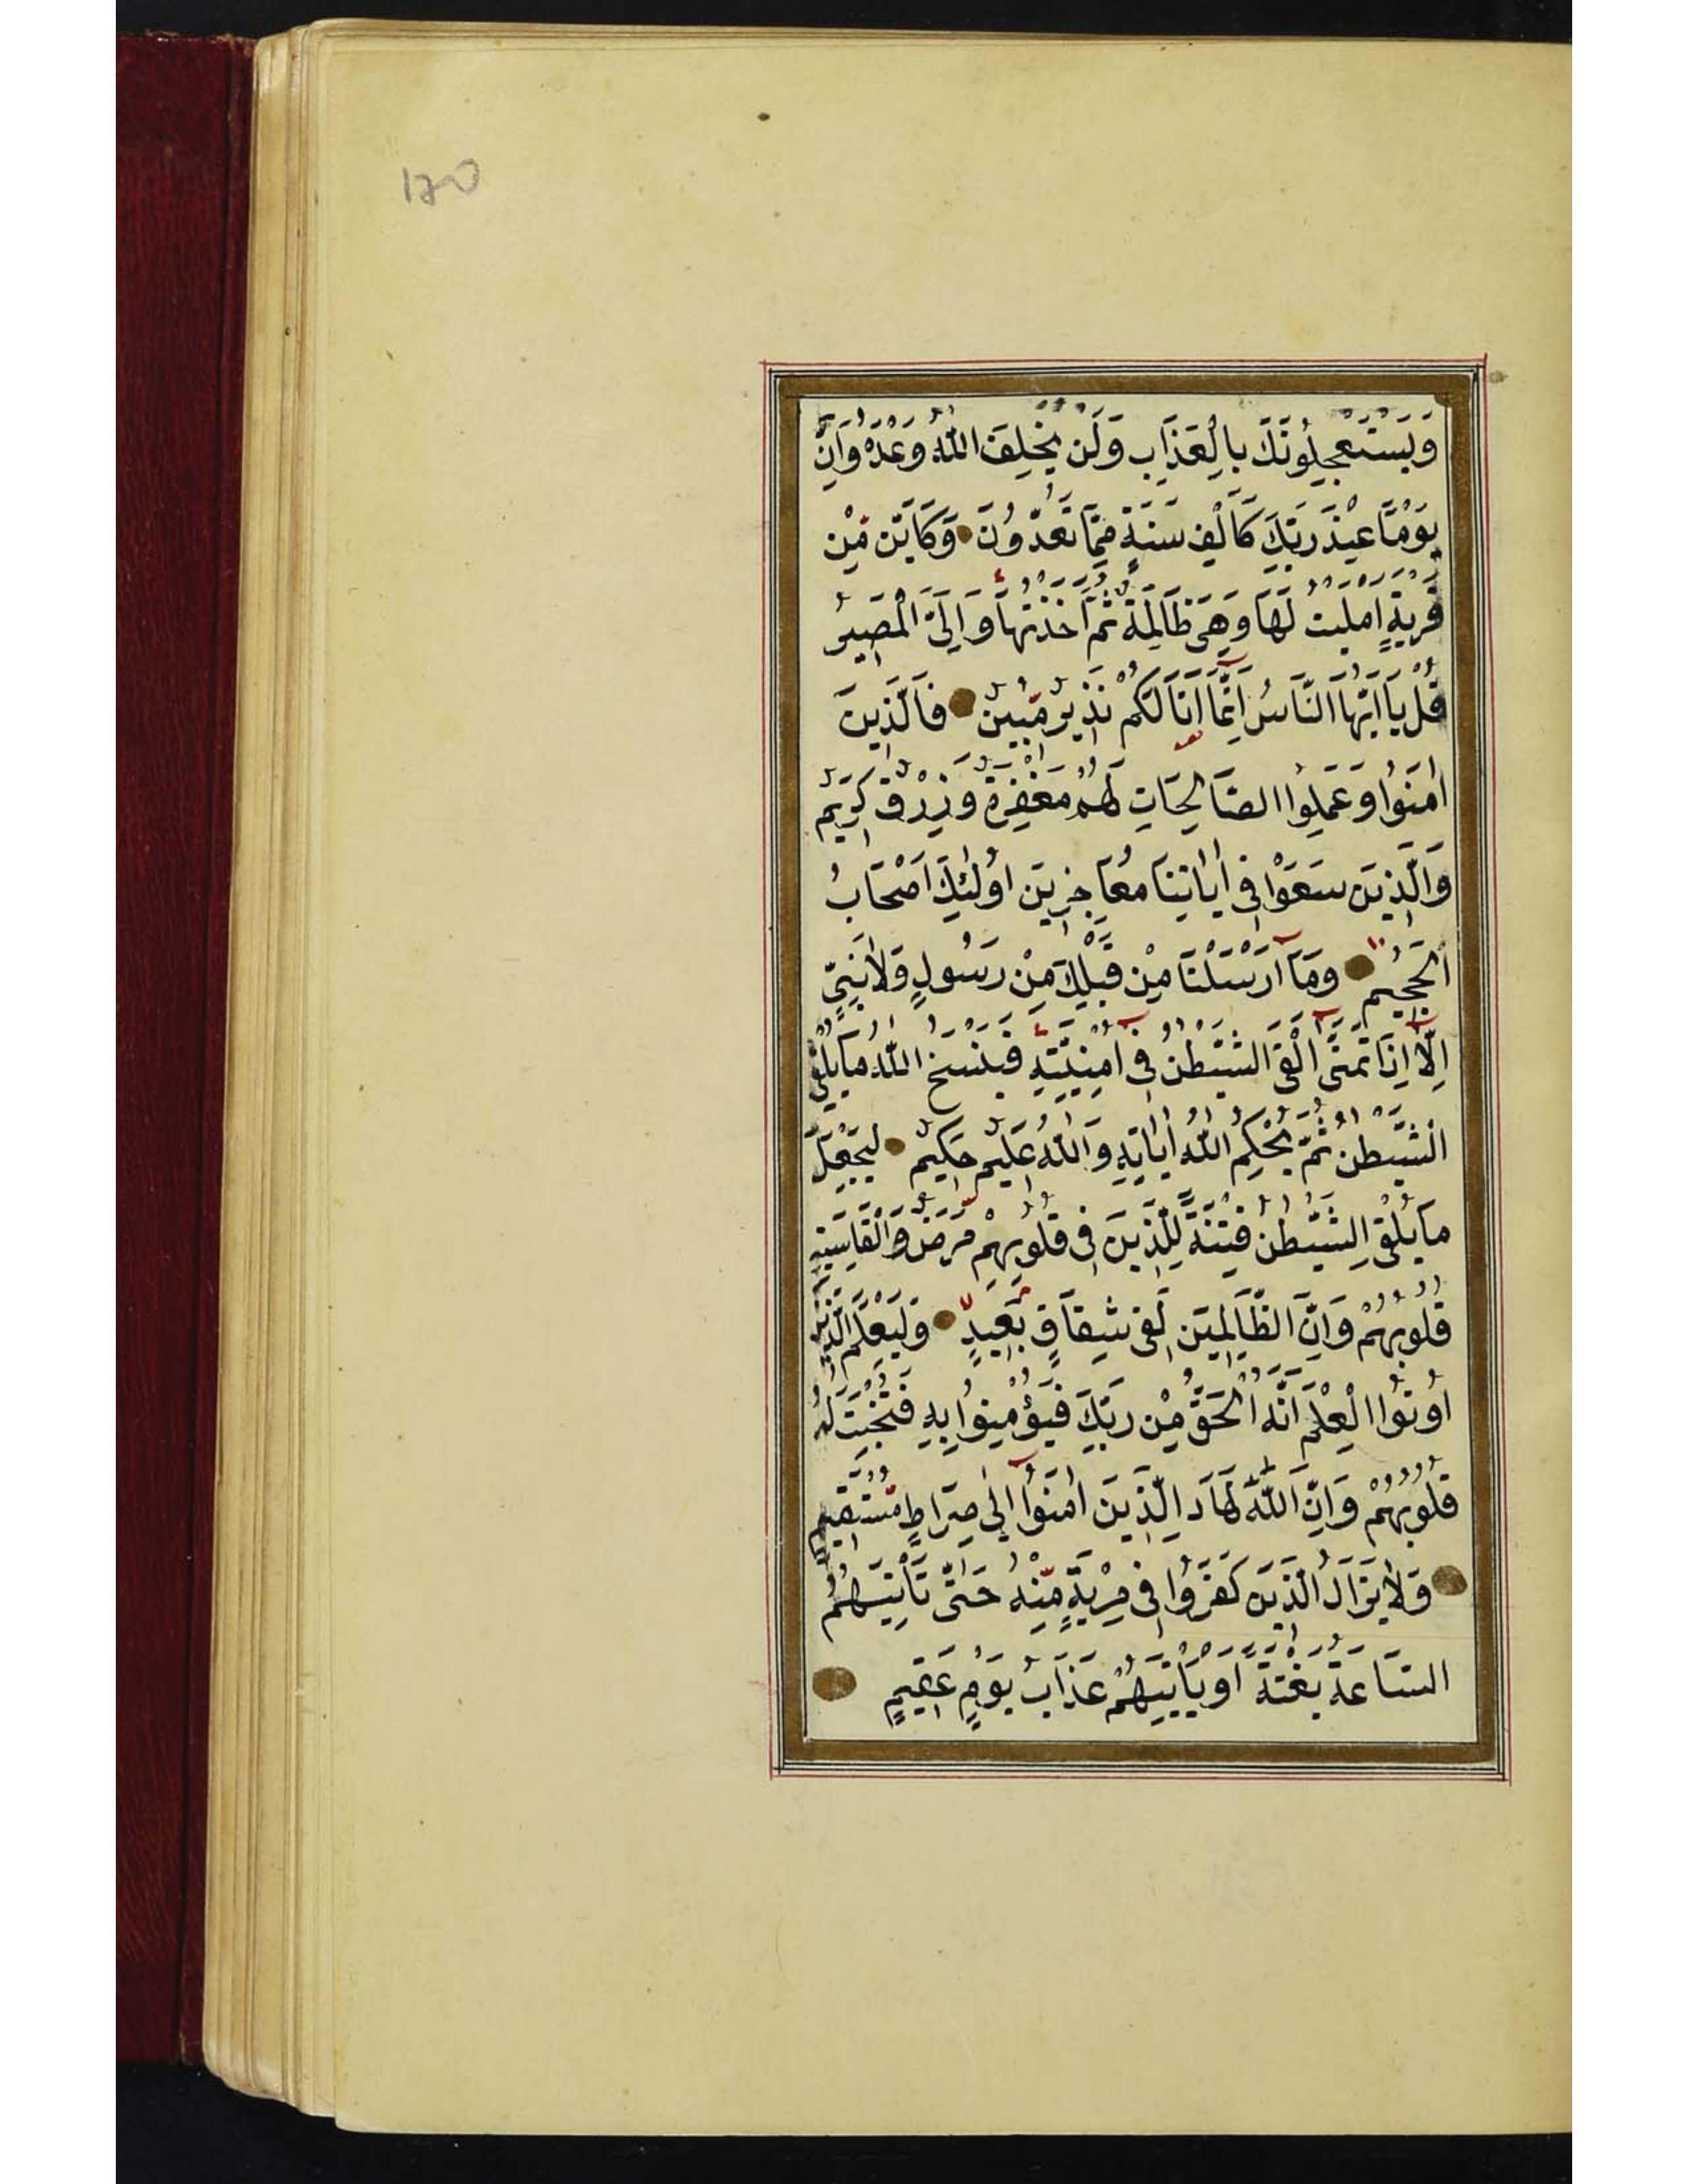 وَيَسْتَعْجِلُونَكَ بِالْعَذَابِ وَلَنْ يُخْلِفَ اللّٰهُ وَعْدَهُ وَاِنَّ
يَوْمًا عِنْدَ رَبِّكَ كَاَلْفِ سَنَةٍ مِمَّا تَعُدُّونَ وَكَاَيِّنْ مِنْ
قَرْيَةٍ اَمْلَيْتُ لَهَا وَهِىَ ظَالِمَةٌ ثُمَّ اَخَذْتُهَا وَاِلَىَّ الْمَصِيرُ
قُلْ يَا اَيُّهَا النَّاسُ اِنَّمَا اَنَا لَكُمْ نَذِيرٌ مُبِينٌ فَالَّذِينَ
اٰمَنُوا وَعَمِلُوا الصَّالِحَاتِ لَهُمْ مَغْفِرَةٌ وَرِزْقٌ كَرِيمٌ
وَالَّذِينَ سَعَوْا فِى اٰيَاتِنَا مُعَاجِزِينَ اُولٰئِكَ اَصْحَابُ
الْجَحِيمِ وَمَا اَرْسَلْنَا مِنْ قَبْلِكَ مِنْ رَسُولٍ وَلَا نَبِىٍّ
اِلَّا اِذَا تَمَنَّى اَلْقَى الشَّيْطٰنُ فِى اُمْنِيَّتِهِ فَيَنْسَخُ اللّٰهُ مَا يُلْقِى
الشَّيْطٰنُ ثُمَّ يُحْكِمُ اللّٰهُ اٰيَاتِهِ وَاللّٰهُ عَلِيمٌ حَكِيمٌ لِيَجْعَلَ
مَا يُلْقِى الشَّيْطٰنُ فِتْنَةً لِلَّذِينَ فِى قُلُوبِهِمْ مَرَضٌ وَالْقَاسِيَةِ
قُلُوبُهُمْ وَاِنَّ الظَّالِمِينَ لَفِى شِقَاقٍ بَعِيدٍ وَلِيَعْلَمَ الَّذِينَ
اُوتُوا الْعِلْمَ اَنَّهُ الْحَقُّ مِنْ رَبِّكَ فَيُؤْمِنُوا بِهِ فَتُخْبِتَ لَهُ
قُلُوبُهُمْ وَاِنَّ اللّٰهَ لَهَادِ الَّذِينَ اٰمَنُوا اِلٰى صِرَاطٍ مُسْتَقِيمٍ
وَلَا يَزَالُ الَّذِينَ كَفَرُوا فِى مِرْيَةٍ مِنْهُ حَتّٰى تَاْتِيَهُمُ
السَّاعَةُ بَغْتَةً اَوْ يَاْتِيَهُمْ عَذَابُ يَوْمٍ عَقِيمٍ